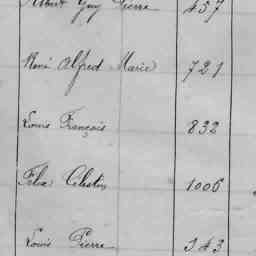 Albert Guy Pierre 457
René Alfred Marie 721
Louis François 832
Félix Célestin 1006
Louis Pierre 343